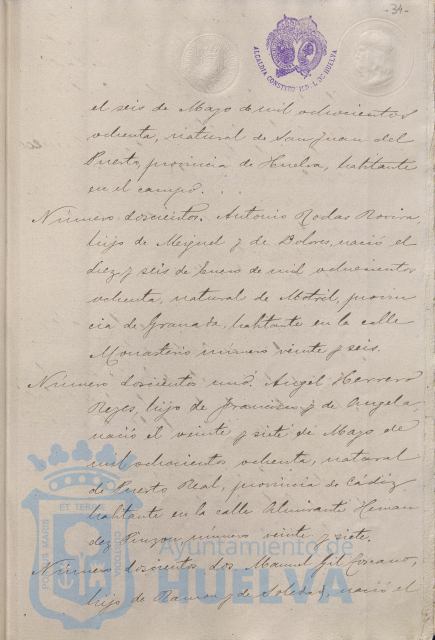 -34-
ALCALDIA CONSTITUCIONAL DE HUELVA
el seis de Mayo de mil ochocientos
ochenta, natural de San Juan del
Puerto, provincia de Huelva, habitante
en el campo.
Número doscientos. Antonio Rodas Rovira,
hijo de Miguel y de Dolores, nació el
diez y seis de Enero de mil ochocientos
ochenta, natural de Motril, provin
cia de Granada, habitante en la calle
Monasterio número veinte y seis.
Número doscientos uno. Angel Herrero
Reyes, hijo de Francisco y de Angela,
nació el veinte y siete de Mayo de
mil ochocientos ochenta, natural
de Puerto Real, provincia de Cádiz,
habitante en la calle Almirante Hernan
dez Pinzon, número veinte y siete.
Número doscientos dos Manuel Gil
hijo de Ramon y de Soledad, nació el
PORTUS MARIS ET TERRAE CUSTODIA
Ayuntamiento de
HUELVA